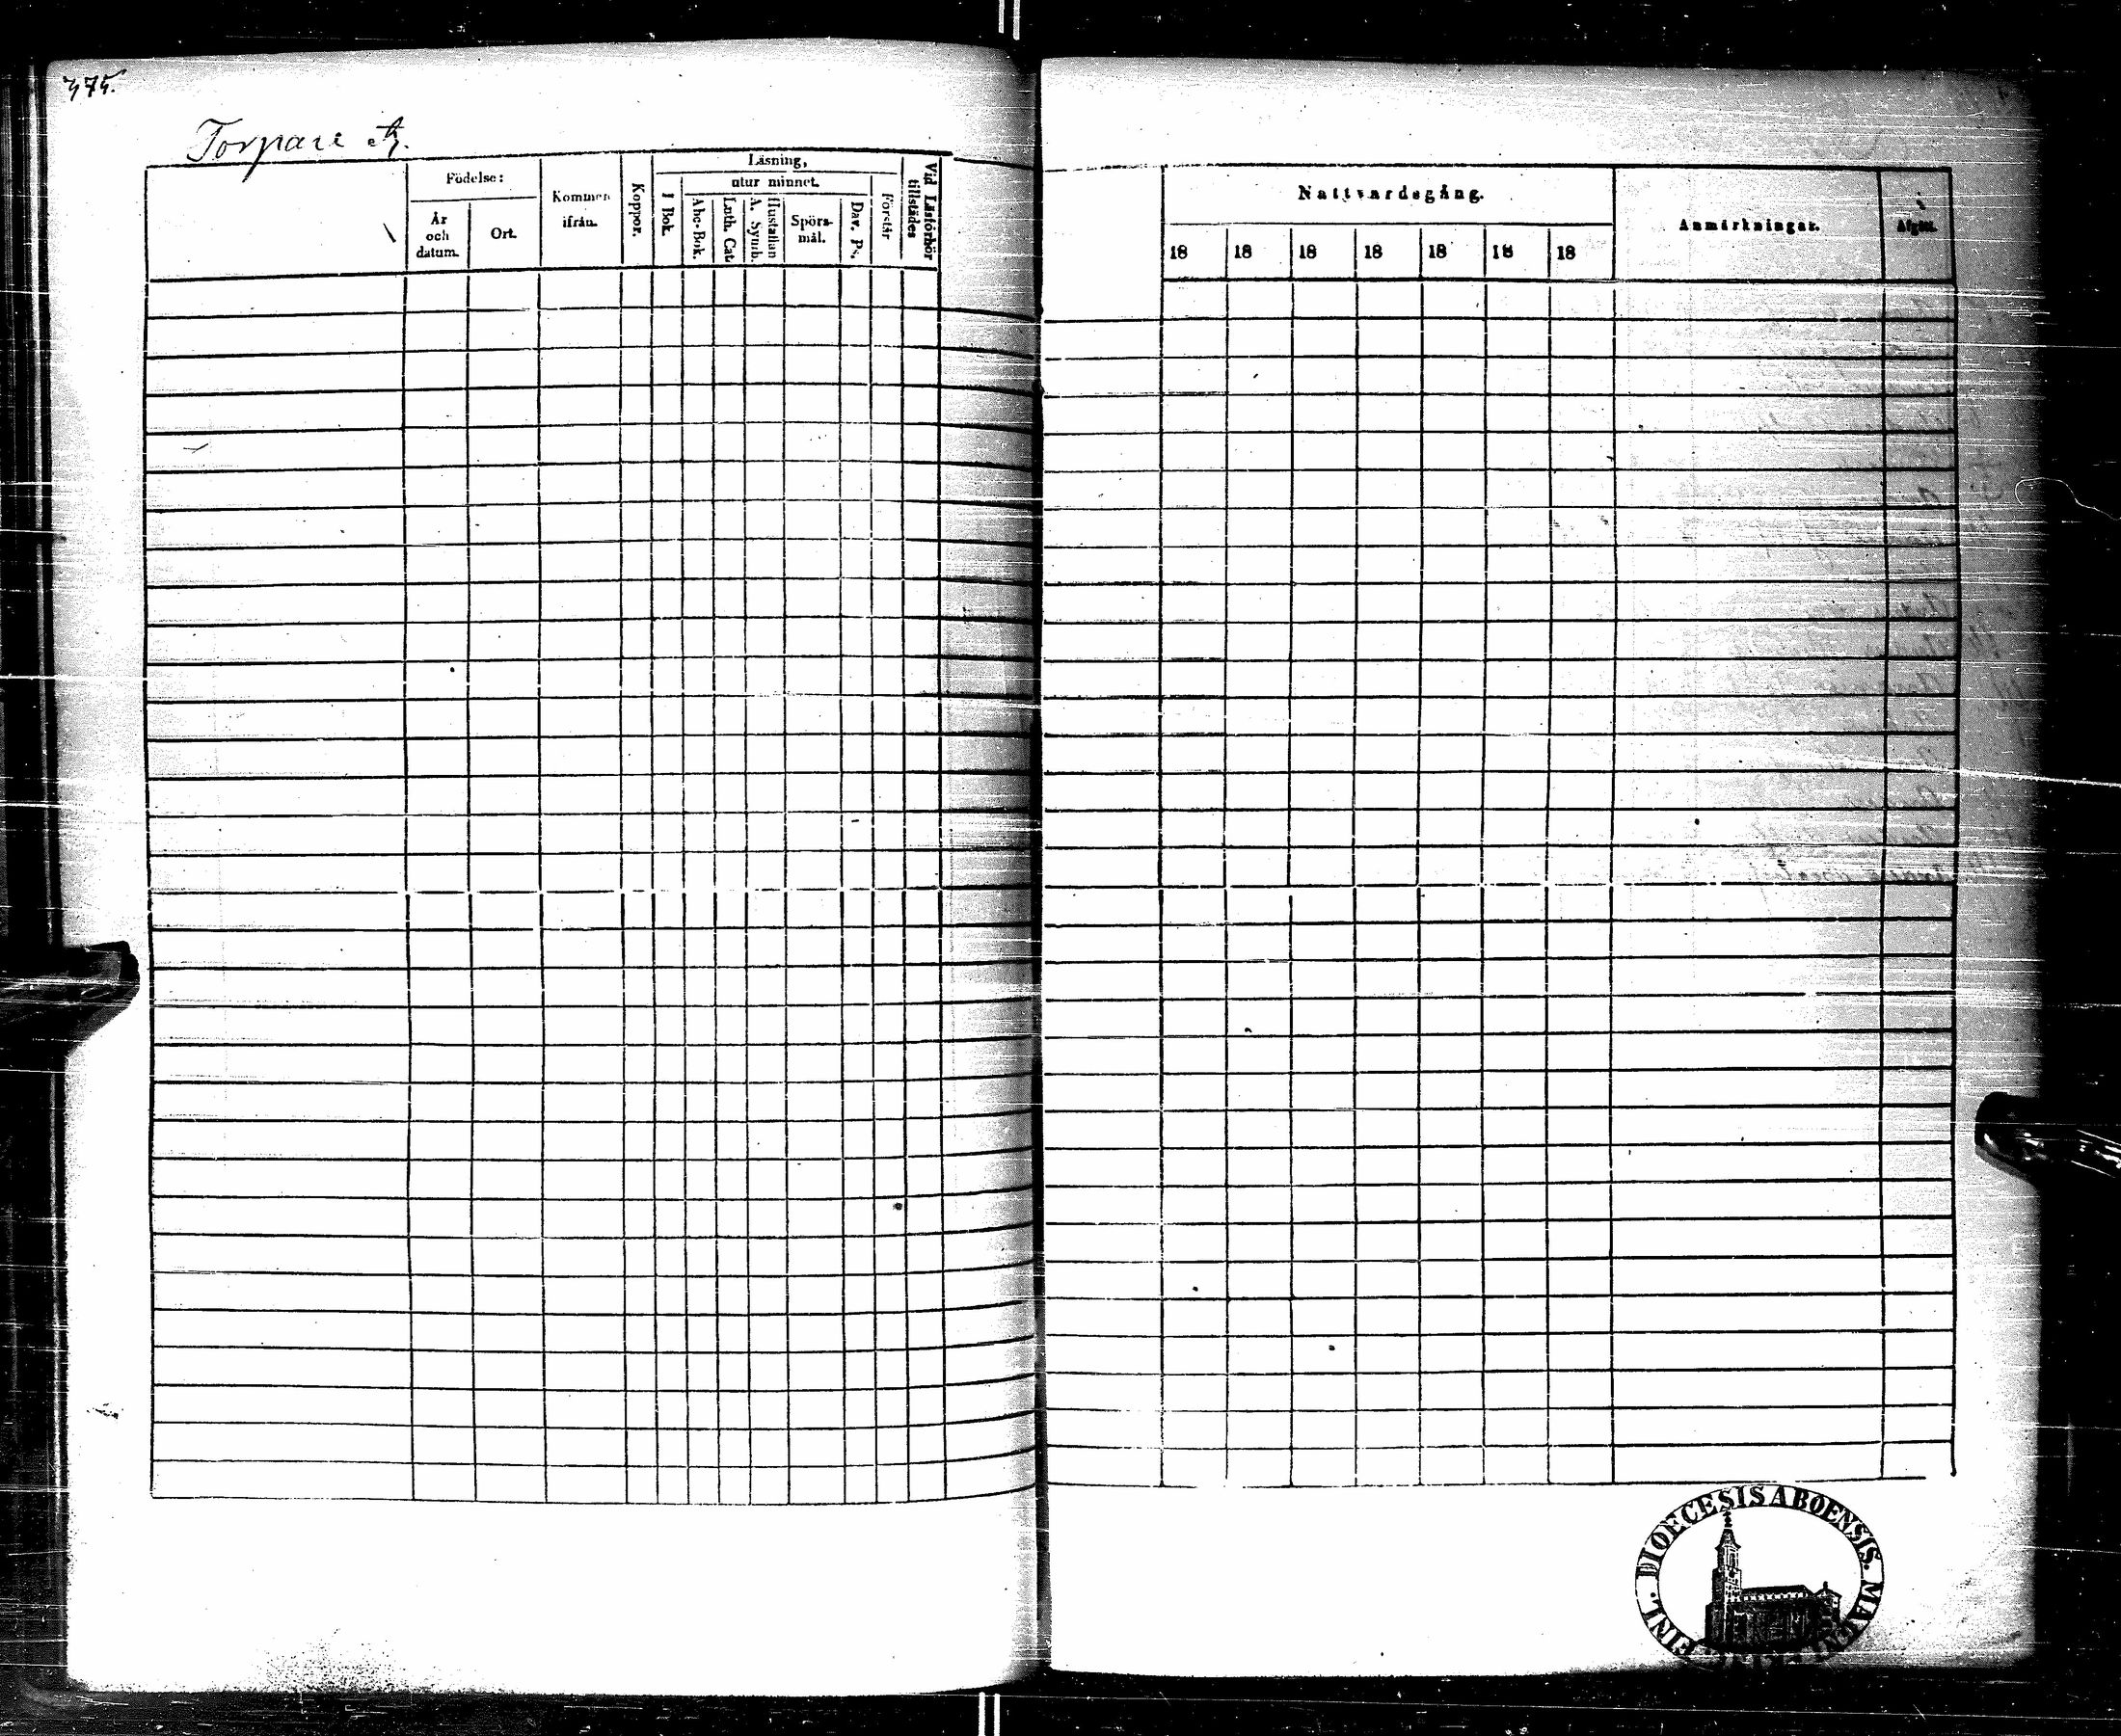 475.
Torpare
Födelse:
År
och
datum.
Ort.
Kommen
ifrån.
Koppor.
Läsning,
utur minnet.
I Bok.
Abc-Bok.
Luth. Cat.
Hustaflan
A. Symb.
Spörs-
mål.
Dav. Ps.
Förstår
Vid Läsförhör
tillstädes
Nattvardsgång.
18 18 18 18 18 18 18
Anmärkningar.
Afgått.
FINL. DIOECESIS ABOENSIS. MAGNI